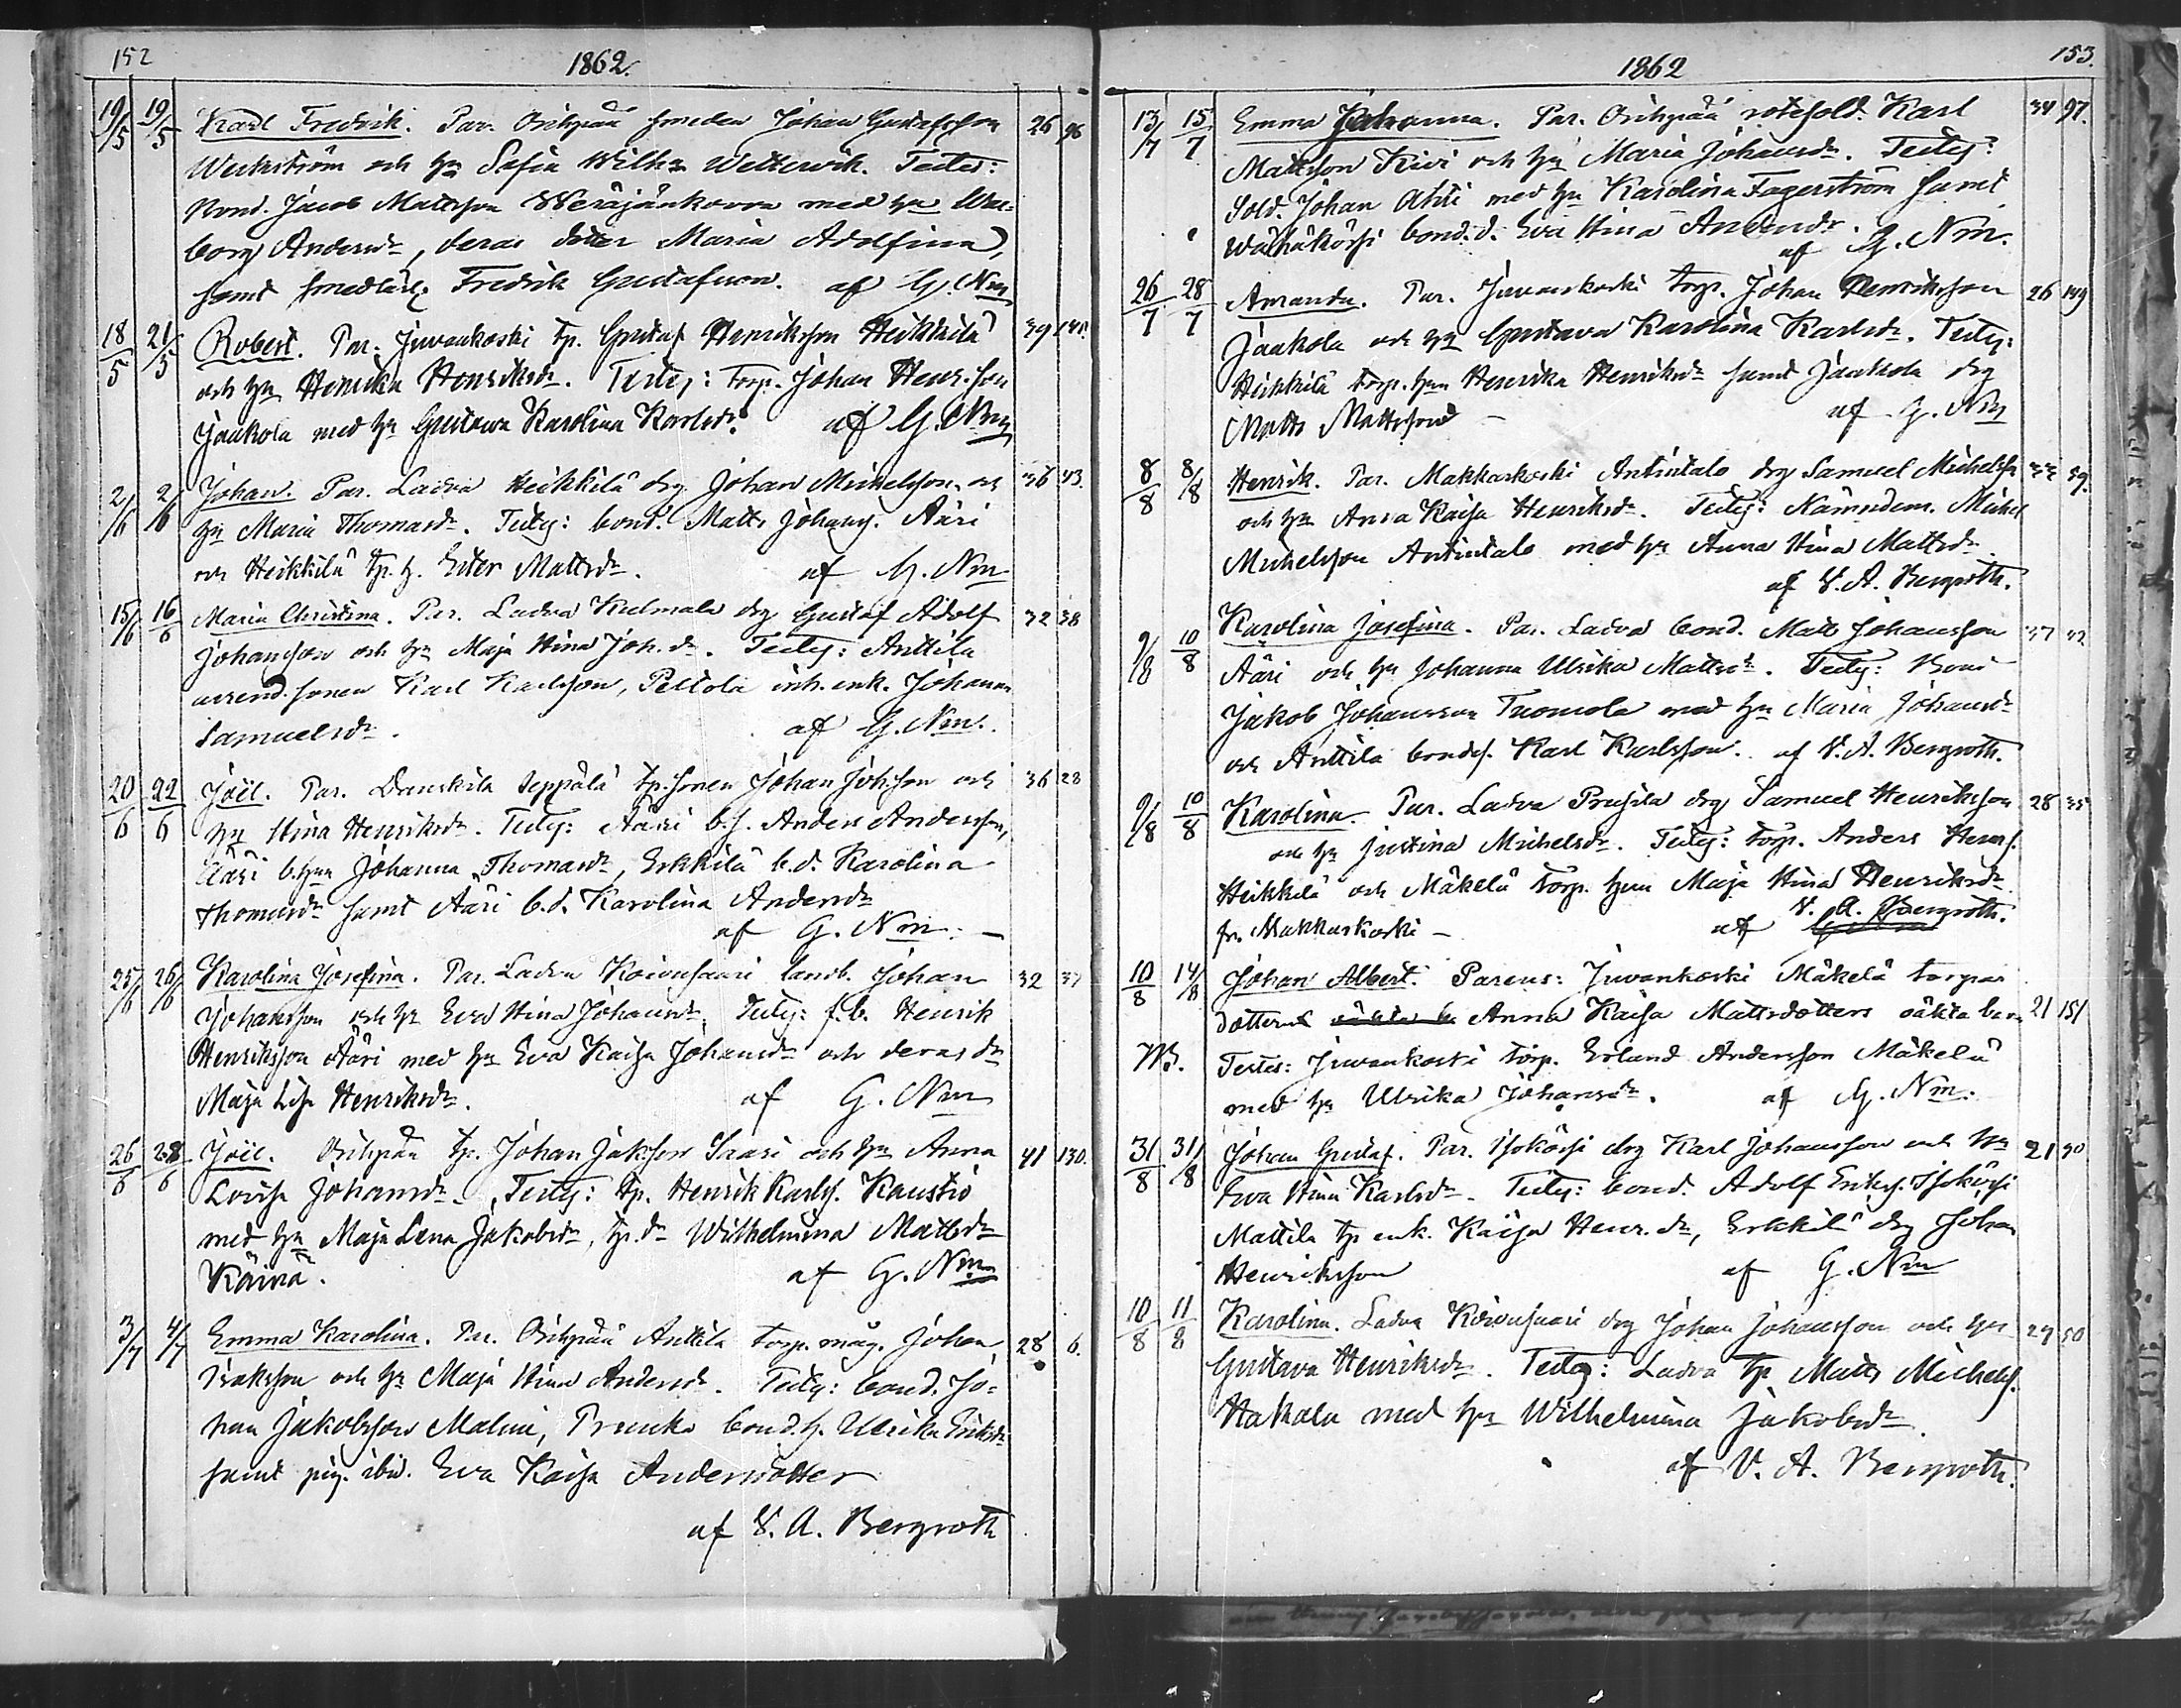 152
1862.
19/5 19/5 Karl Fredrik. Par. Orihpää smeden Johan Gustafsson 26 96
Weckström och hu Sofia Wilh:a Wetterwik. Testes:
Bond. Jacob Mattsson Weräjänkorva med hu Wal-
borg Andersdr, deras dotter Maria Adolfina,
samt smedlärl. Fredrik Gustafsson. af G. Nm
18/5 21/5 Robert. Par. Juvankoski tp. Gustaf Henriksson Heikkilä 39 145.
och hu Henrika Henriksdr. Testes: Torp. Johan Henr.son
Jaakola med hu Gustava Karolina Karlsdr. af G. Nm
2/6 2/6 Johan. Par. Ladva Heikkilä drg Johan Michelsson och 36 43.
hu Maria Thomasdr. Testes: bond. Matts Johans. Ääri
och Heikkilä tp. h. Ester Mattsdr. af G. Nm
15/6 16/6 Maria Christina. Par. Ladva Kulmala drg Gustaf Adolf 32 38
Johansson och hu Maja Stina Joh.dr. Testes: Anttila
arrend. sonen Karl Karlsson, Peltola inh. enk. Johanna
Samuelsdr. af G. Nm.
20/6 22/6 Joël. Par. Danskila Seppälä tp. sonen Johan Johsson och 36 28
hu Stina Henriksdr. Testes: Ääri b.s. Anders Andersson,
Ääri b.hu Johanna Thomasdr, Erkkilä b.d. Karolina
Thomasdr samt Ääri b.d. Karolina Andersdr
af G. Nm. —
25/6 26/6 Karolina Josefina. Par. Ladva Koivusaari landb. Johan 32 37
Johansson och hu Eva Stina Johansdr. Testes: f.b. Henrik
Henriksson Ääri med hu Eva Kaisa Johansdr och deras dr
Maja Lisa Henriksdr. af G. Nm
26/6 28/6 Joël. Orihpää tp. Johan Jakson Saari och hu Anna 41 130.
Lovisa Johansdr. Testes: tp. Henrik Karls. Kaustio
med hu Maja Lena Jakobsdr, tp. dr Wilhelmina Mattsdr
Käinä. af G. Nm
3/7 4/7 Emma Karolina. Par. Orihpää Anttila torp. måg. Johan 28 6.
Isaksson och hu Maja Stina Andersdr. Testes: bond. Jo-
han Jakobsson Malmi, Prunka bond. h. Ulrika Eriksdr
samt pig. ibid. Eva Kaisa Andersdotter
af V. A. Bergroth
153.
1862
13/7 15/7 Emma Johanna. Par. Orihpää rotesold. Karl 34 97.
Mattsson Kivi och hu Maria Johansdr. Testes:
Sold. Johan Ahti med hu Karolina Fagerström samt
Wähäkörsi bond. d. Eva Stina Andersdr.
af G. Nm.
26/7 28/7 Amanda. Par. Juvankoski torp. Johan Henriksson 26 149
Jaakola och hu Gustava Karolina Karlsdr. Testes:
Heikkilä torp. hu Henrika Henriksdr samt Jaakola drg
Matts Mattsson — af G. Nm
8/8 8/8 Henrik. Par. Makkarkoski Antintalo drg Samuel Michelsson 39.
och hu Anna Kaisa Henriksdr. Testes: Nämndem. Michel
Michelsson Antintalo med hu Anna Stina Mattsdr.
af V. A. Bergroth.
9/8 10/8 Karolina Josefina. Par. Ladva bond. Matts Johansson 37 42
Ääri och hu Johanna Ulrika Mattsdr. Testes: Bond
Jakob Johansson Tuomola med hu Maria Johansdr
och Anttila bondes. Karl Karlsson. af V. A. Bergroth.
9/8 10/8 Karolina. Par. Ladva Prusila drg Samuel Henriksson 28 35
och hu Justina Michelsdr. Testes: torp. Anders Henrs.
Heikkilä och Mäkelä torp. hu Maja Stina Henriksdr
fr. Makkarkoski — af V. A. Bergroth.
10/8 14/8 Johan Albert. Parens: Juvankoski Mäkelä torpar
dotterns Anna Kaisa Mattsdotters oäkta barn 21 151
NB. Testes: Juvankoski torp. Erland Andersson Mäkelä
med hu Ulrika Johansdr. af G. Nm.
31/8 31/8 Johan Gustaf. Par. Isokörsi drg Karl Johansson och hu 21 90
Eva Stina Karlsdr. Testes: bond. Adolf Eriks. Isokörsi
Mattila tp enk. Kaisa Henr. dr, Erkkilä drg Johan
Henriksson af G. Nm
10/8 11/8 Karolina. Ladva Koivusaari drg Johan Johansson och hu 29 50
Gustava Henriksdr. Testes: Ladva tp Matts Michels.
Hakala med hu Wilhelmina Jakobsdr.
af V. A. Bergroth.